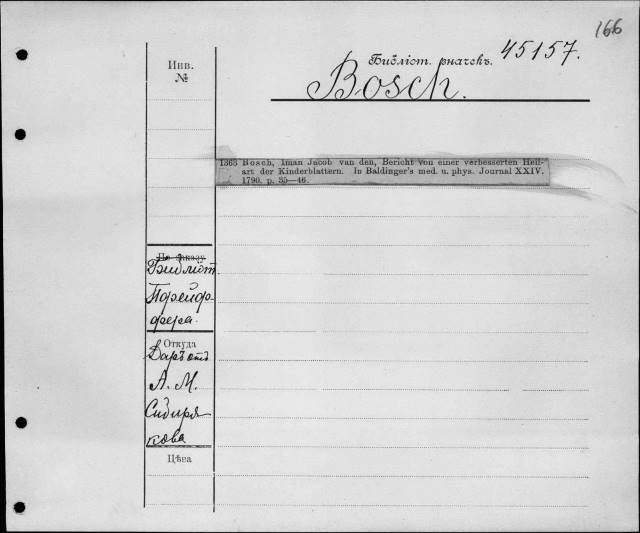 166
Библіот. значекъ. 45157.
Инв.
№
Bosch.
1365 Bosch, Iman Jacob van den, Bericht von einer verbesserten Heil-
art der Kinderblattern. In Baldinger's med. u. phys. Journal XXIV.
1790. p. 35—46.
По заказу
Библіот.
Пфейф-
фера.
Откуда
Даръ отъ
А. М.
Сибиря-
кова
Цѣна